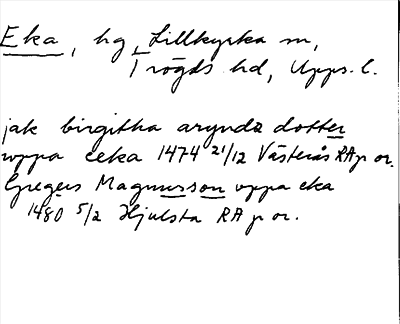 Eka, hg, Lillkyrka sn,
Trögds hd, Upps. l.
jak birgitha aryndz dotter
vppa eeka 1474 21/12 Västerås RAp or.
Gregers Magnusson vppa eka
1480 5/2 Hjulsta RA p or.